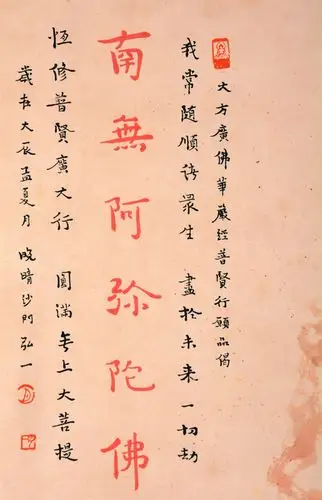 大方廣佛華嚴經普賢行願品偈
我常隨順諸眾生 盡於未來一切劫
南無阿弥陀佛
恆修普賢廣大行 圓滿無上大菩提
歲在大辰孟夏月 晚晴沙門弘一